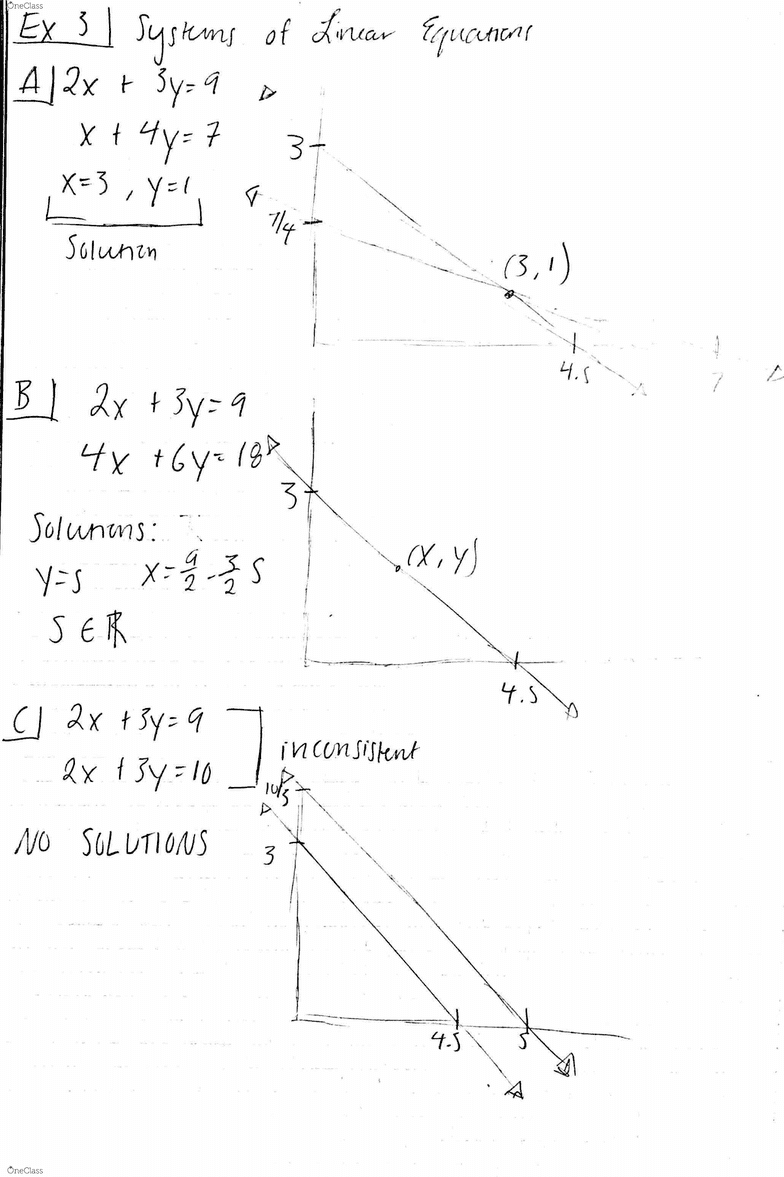 OneClass
Ex 3 Systems of Linear Equations
A 2x + 3y = 9
x + 4y = 7
x=3 , y=1
Solution
3
7/4
(3, 1)
4.5
7
B 2x + 3y = 9
4x + 6y = 18
3
Solutions:
y=s x= 9/2 - 3/2 s
s ∈ ℝ
(x, y)
4.5
C 2x + 3y = 9
2x + 3y = 10
inconsistent
10/3
NO SOLUTIONS
3
4.5
5
OneClass